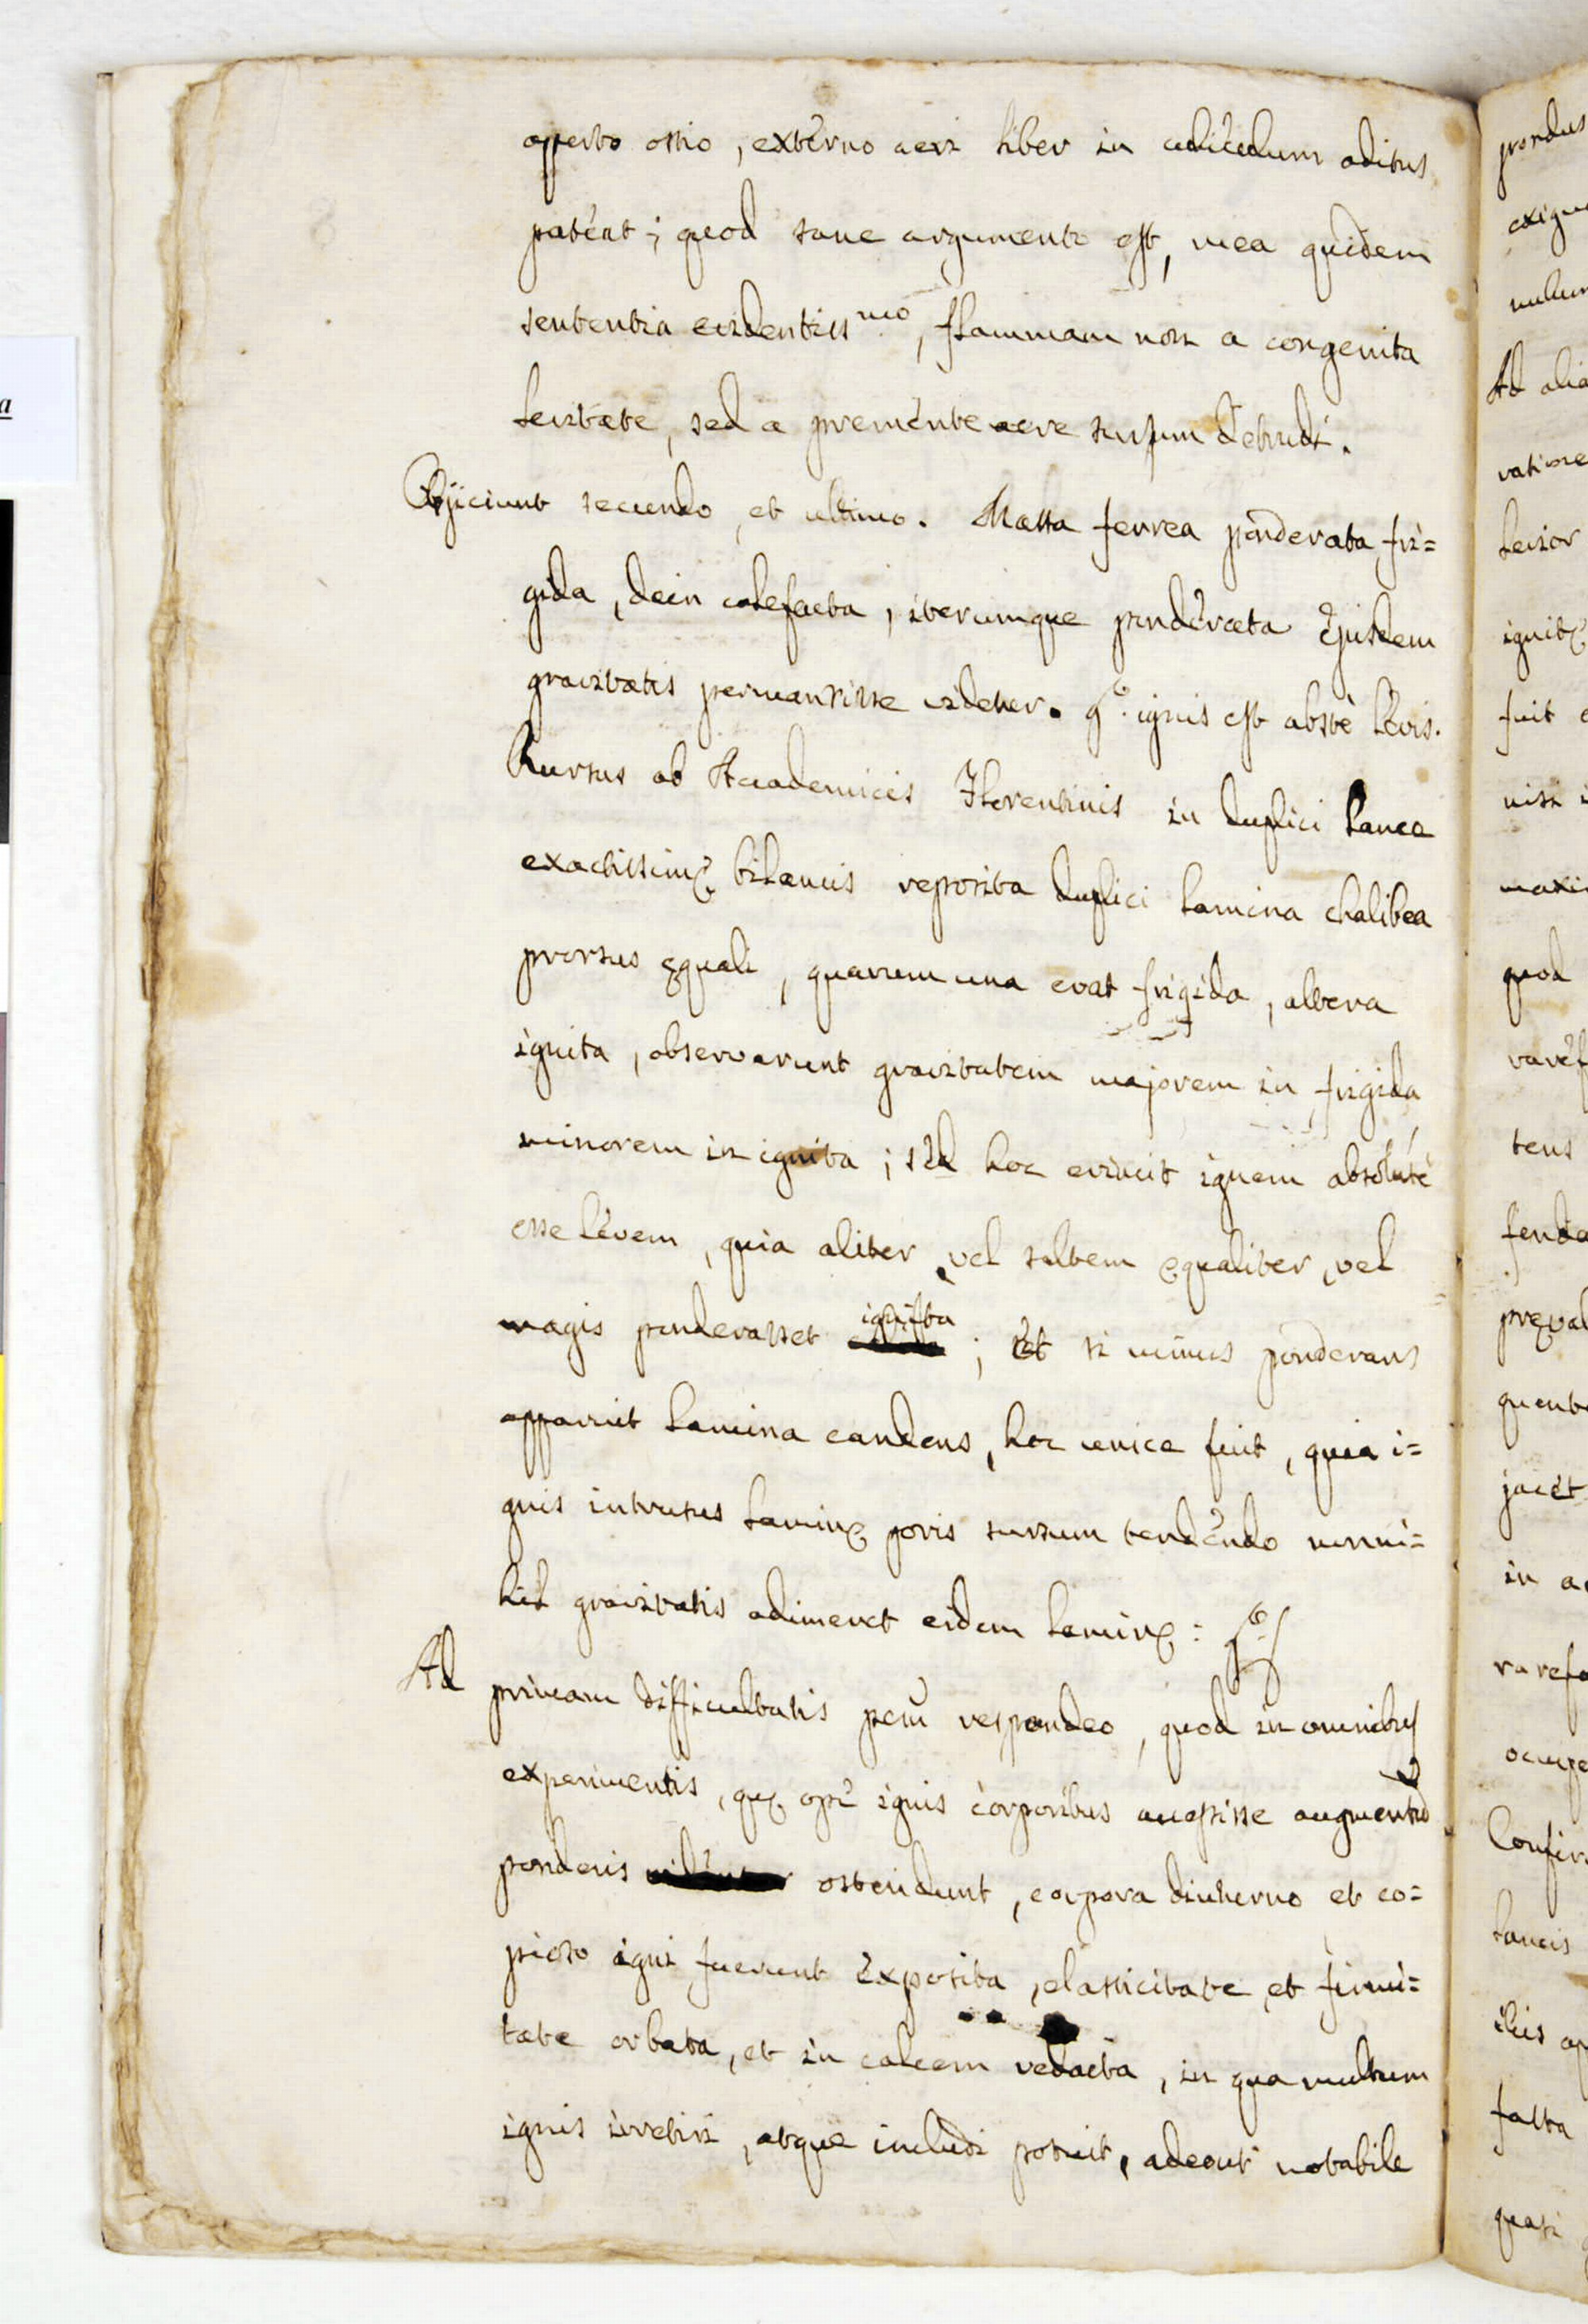 aperto ostio, externo aeri liber in cubiculum aditus
patèat; quod sane argumento est, mea quidem
sententia evidentiss.mo, flammam non a congenita
levitate, sed a premènte aere sursum detrudi.
Objiciunt secundo, et ultimo. Massa ferrea ponderata fri=
gida, dein calefacta, iterumque ponderata ejusdem
gravitatis permansisse videtur. gº. ignis est abstè lèvis.
Rursus ab Academicis Florentinis in duplici lance
exactissimę bilancis reposita duplici lamina chalibea
prorsus ęquali, quarum una erat frigida, altera
ignita, observarunt gravitatem majorem in frigida,
minorem in ignita; sed hoc evincit ignem absolutè
esse lèvem, quia aliter, vel saltem ęqualiter, vel
magis ponderasset ignita; et si minus ponderans
apparuit lamina candens, hoc unice fuit, quia i=
gnis intrusus laminę poris sursum tendèndo nonni=
hil gravitatis adimeret eidem laminę: gº.
Ad primam difficultatis pem respondeo, quod in omnibus
experimentis, quę ope ignis corporibus accessisse augmentũ
ponderis ostendunt, corpora diuturno et co=
pioso igni fuerunt exposita, elasticitate et firmi=
tate orbata, et in calcem redacta, in qua multum
ignis irretiri, atque includi potuit, adeout notabile
pondus
exigu
Ad alia
ratione
levior
fuit
maxi
quod
raref
tens
pręval
jacet
in a
rarefa
Confir
lancis
falsa
quasi
a